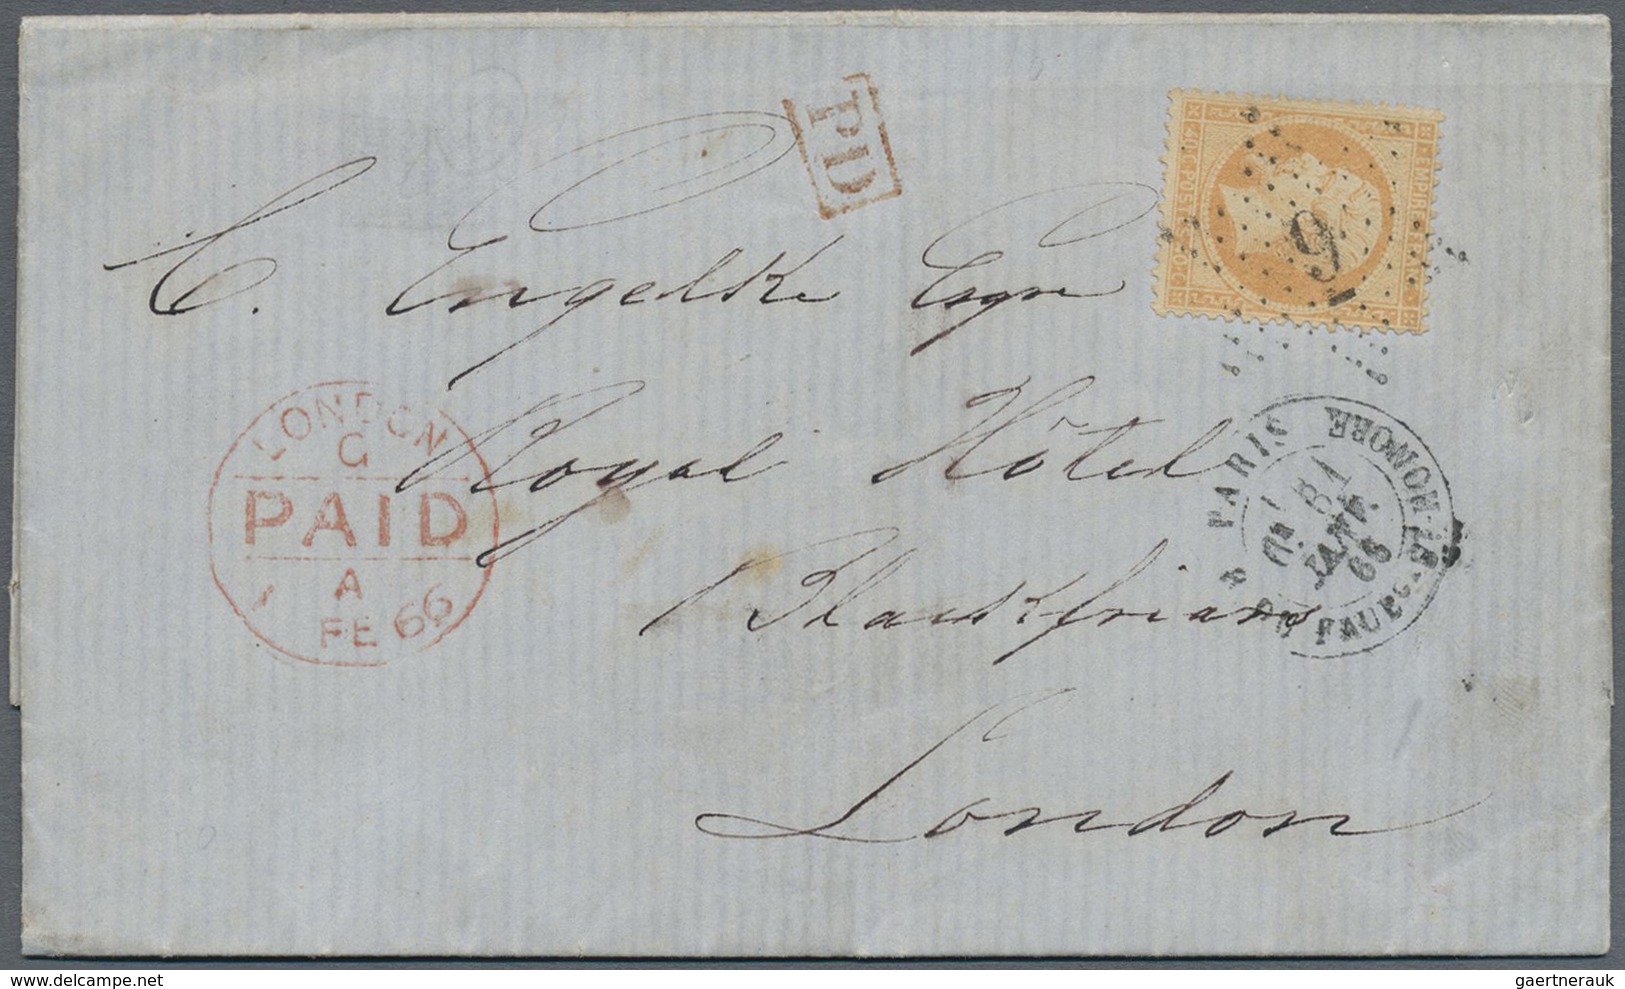 PD
EMPIRE FRANC
40 C. POSTES 40 C.
9
C. Engelke Esqre
Royal Hôtel
Blackfriars
London
LONDON
G
PAID
A
1 FE 66
PARIS
R. DU FAUBG. ST. HONORE
31
JANV.
66
gaertnerauk